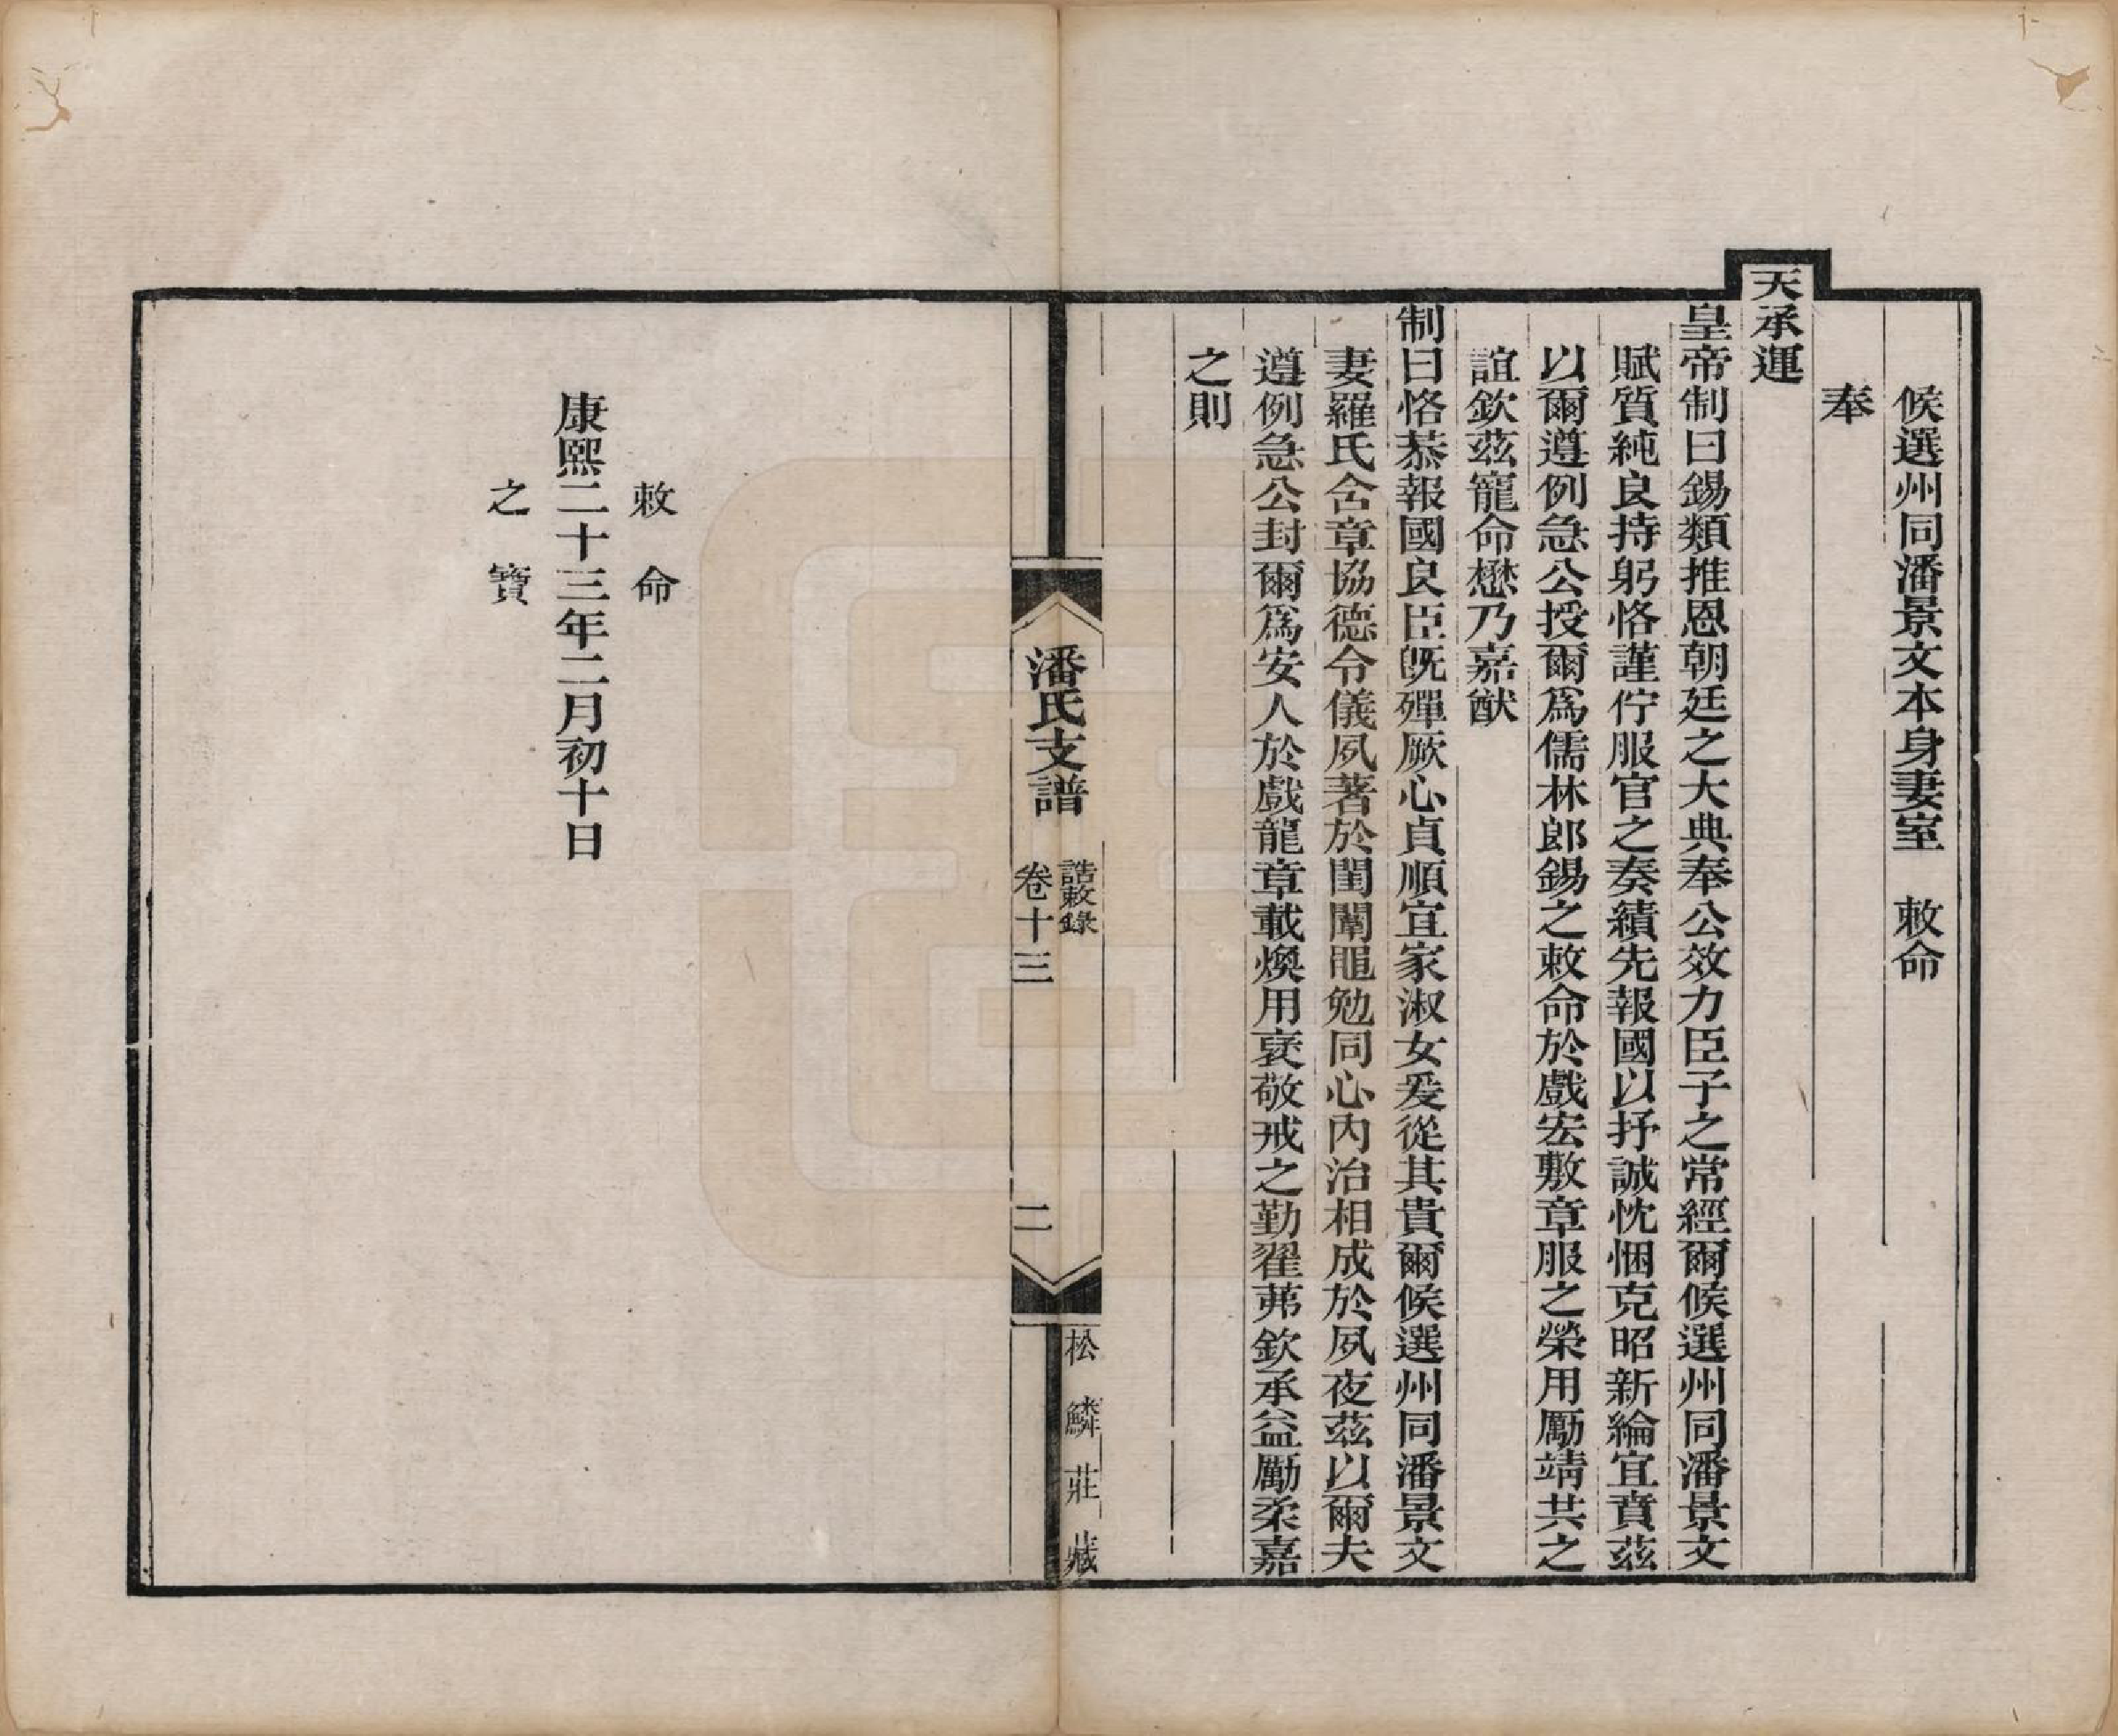 候選州同潘景文本身妻室　敕命
奉
天承運
皇帝制曰錫類推恩朝廷之大典奉公效力臣子之常經爾候選州同潘景文
賦質純良持躬恪謹佇服官之奏績先報國以抒誠忱悃克昭新綸宜賁茲
以爾遵例急公授爾爲儒林郎錫之敕命於戲宏敷章服之榮用勵靖共之
誼欽茲寵命懋乃嘉猷
制曰恪恭報國良臣旣殫厥心貞順宜家淑女爰從其貴爾候選州同潘景文
妻羅氏含章協德令儀夙著於閨闈黽勉同心內治相成於夙夜茲以爾夫
遵例急公封爾爲安人於戲龍章載煥用褒敬戒之勤翟茀欽承益勵柔嘉
之則
潘氏支譜
誥敕錄
卷十三
二
松鱗莊藏
敕命
康熙二十三年二月初十日
之寶